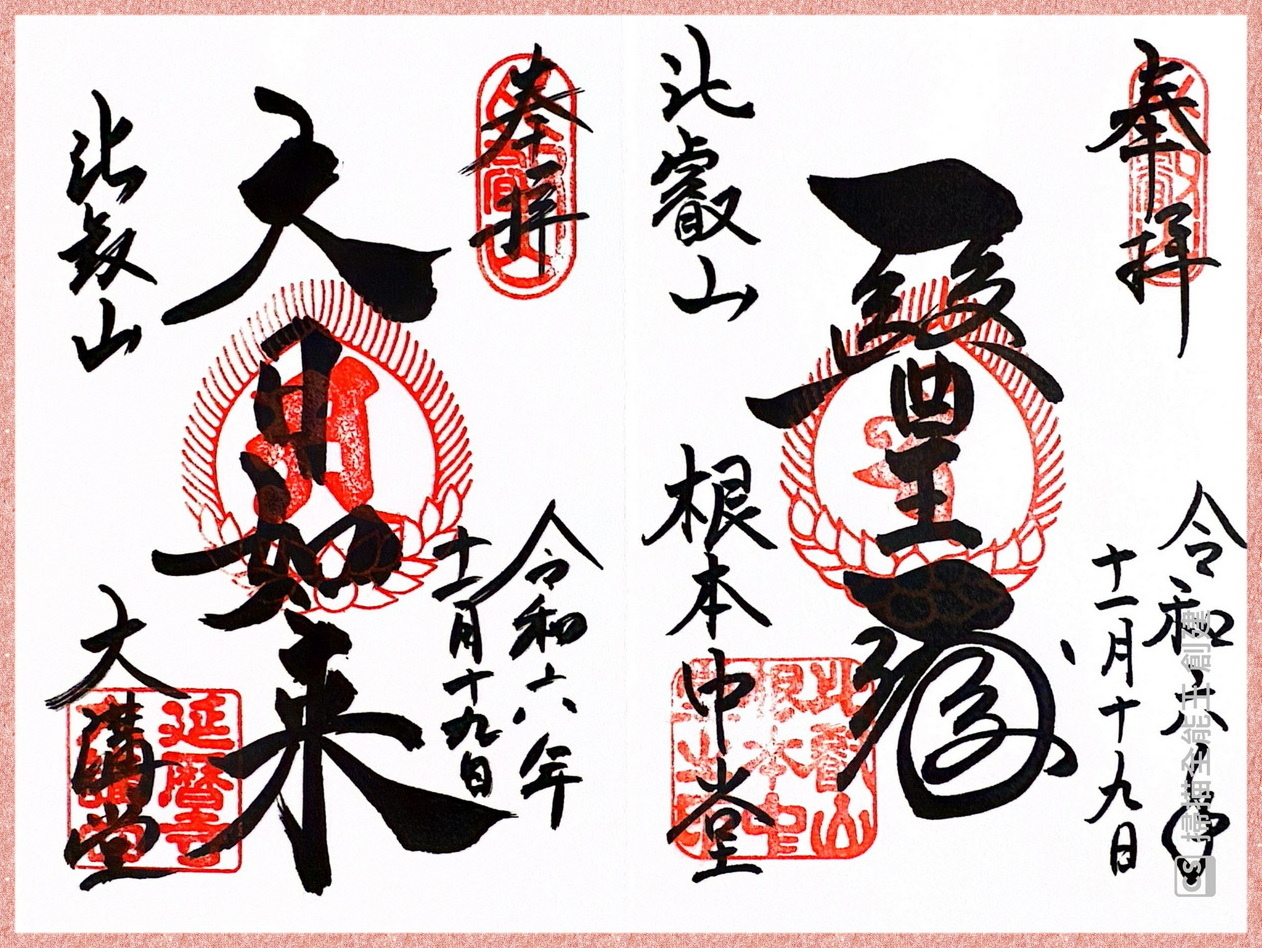 奉拝
令和六年
十一月十九日
醫王殿
比叡山
根本中堂
比叡山
根本中堂
奉拝
令和六年
十一月十九日
大日如来
比叡山
大講堂
延暦寺
扫描全能王 创建
CS